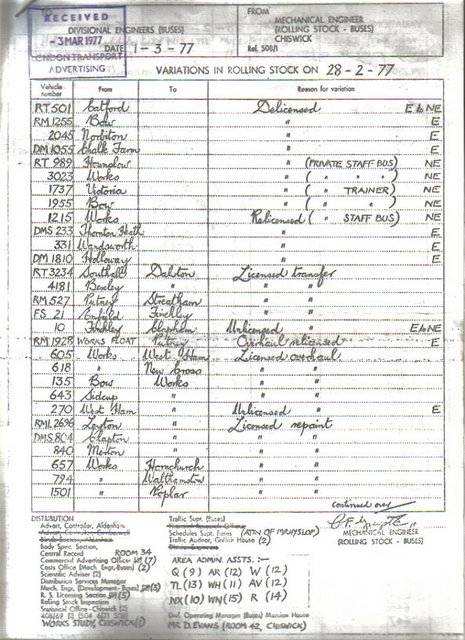 RECEIVED
- 3 MAR 1977
LONDON TRANSPORT
ADVERTISING
DIVISIONAL ENGINEERS (BUSES)
DATE 1-3-77
FROM
MECHANICAL ENGINEER
(ROLLING STOCK - BUSES)
CHISWICK
Ref. 508/1
VARIATIONS IN ROLLING STOCK ON 28-2-77
Vehicle number From To Reason for variation
RT 501 Catford Delicensed E to NE
RM 1255 Bow " E
2045 Norbiton " E
DM 1055 Chalk Farm " E
RT 989 Hounslow " (PRIVATE STAFF BUS) NE
3023 Works " ( " " " ) NE
1737 Victoria " ( " TRAINER) NE
1955 Bow " ( " " ) NE
1215 Works Relicensed ( " STAFF BUS) NE
DMS 233 Thornton Heath " E
331 Wandsworth " E
DM 1810 Holloway " E
RT 3234 Southall Dalston Licensed transfer
4181 Bexley " " "
RM 527 Putney Streatham " "
FS 21 Enfield Finchley " "
10 Finchley Clapham Unlicensed " E to NE
RM 1928 WORKS FLOAT Putney Overhaul relicensed E
605 Works West Ham Licensed overhaul
618 " New Cross " "
135 Bow Works " "
643 Sidcup " " "
270 West Ham " Unlicensed " E
RML 2696 Leyton " Licensed repaint
DMS 804 Clapton " " "
840 Merton " " "
657 Works Hornchurch " "
794 " Walthamstow " "
1501 " Poplar " "
continued over
MECHANICAL ENGINEER
(ROLLING STOCK - BUSES)
DISTRIBUTION
Advert. Controller, Aldenham
Body Spec. Section,
Central Record ROOM 34
Commercial Advertising Officer (7)
Costs Office (Mech. Engr. Buses) (2)
Scientific Adviser (2)
Distribution Services Manager
Mech. Engr. (Development - Types) (3)
R. S. Licensing Section (5)
Rolling Stock Inspection
Statistical Office - Chiswick (2)
WORKS STUDY, CHISWICK (1)
Traffic Supt. (Buses)
Schedules Supt. (Buses) (ATN OF MR HYSLOP)
Traffic Auditor, Griffith House (2)
AREA ADMIN. ASSTS. :-
Q (9) AR (12) W (12)
TL (13) WH (11) AV (12)
NX (10) WN (15) R (14)
Divl. Operating Manager (Buses) Mansion House
MR D. EVANS (ROOM 42, CHISWICK)